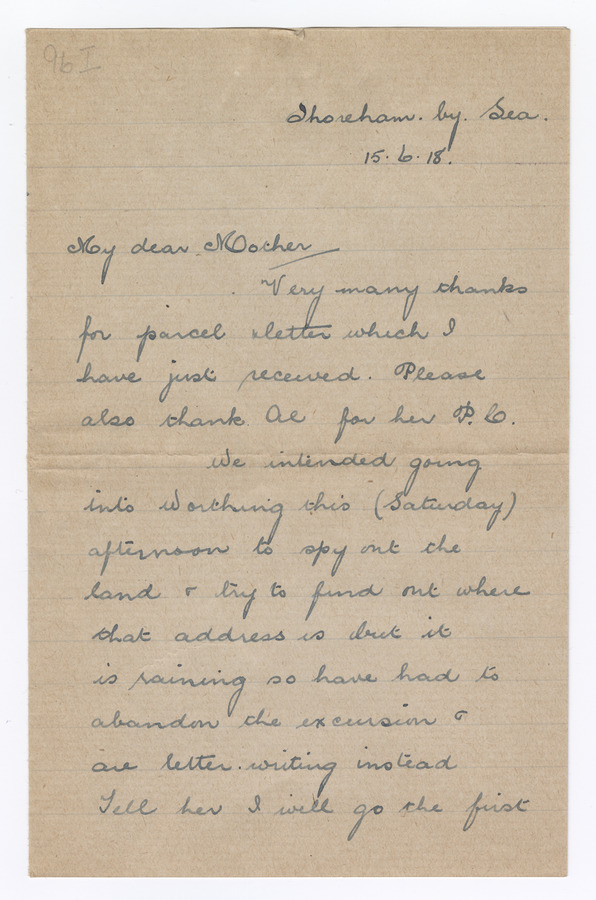 96I
Shoreham. by. Sea.
15. 6. 18.
My dear Mother
Very many thanks
for parcel & letter which I
have just received. Please
also thank Al for her P.C.
We intended going
into Worthing this (Saturday)
afternoon to spy out the
land & try to find out where
that address is but it
is raining so have had to
abandon the excursion &
are letter. writing instead
Tell her I will go the first